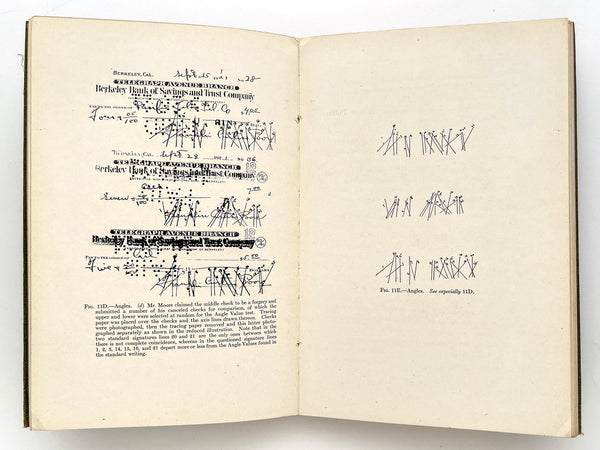 BERKELEY, CAL. Sept 15 No 28
TELEGRAPH AVENUE BRANCH
Berkeley Bank of Savings and Trust Company
PAY TO THE ORDER OF
Four
Sept 28 No 36
TELEGRAPH AVENUE BRANCH
Berkeley Bank of Savings and Trust Company
Cash 7.00
Seven
Franklin
TELEGRAPH AVENUE BRANCH
Berkeley Bank of Savings and Trust Company
PAY TO THE ORDER OF Cash 5.00
Five
FIG. 11D.—Angles. (d) Mr. Moore claimed the middle check to be a forgery and
submitted a number of his canceled checks for comparison, of which the
upper and lower were selected at random for the Angle Value test. Tracing
paper was placed over the checks and the axis lines drawn thereon. Checks
were photographed, then the tracing paper removed and this latter photo-
graphed separately as shown in the reduced illustration. Note that in the
two standard signatures lines 20 and 21 are the only ones between which
there is not complete coincidence, whereas in the questioned signature lines
1, 2, 3, 14, 15, 16, and 21 depart more or less from the Angle Values found in
the standard writing.
FIG. 11E.—Angles. See especially 11D.